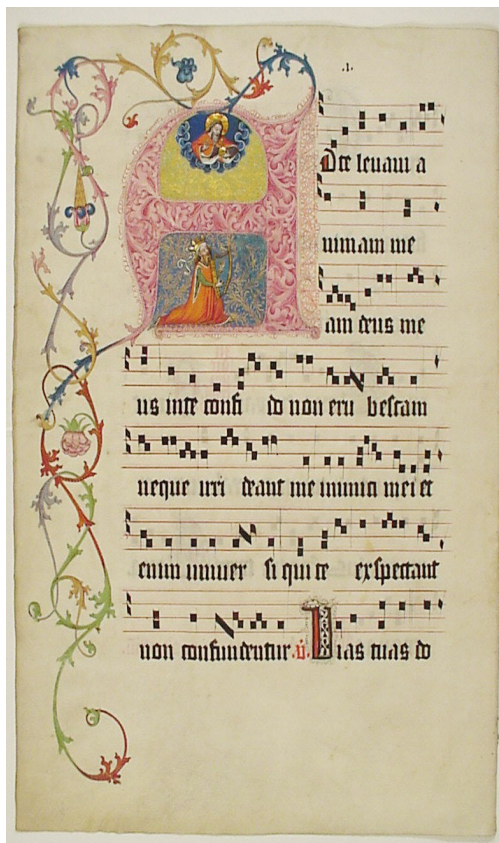 .1.
A Dte levavi a
nimam me
am deus me
us in te confi do non eru bescam
neque irri deant me inimici mei et
enim univer si qui te exspectant
non confundentur v. Vias tuas do